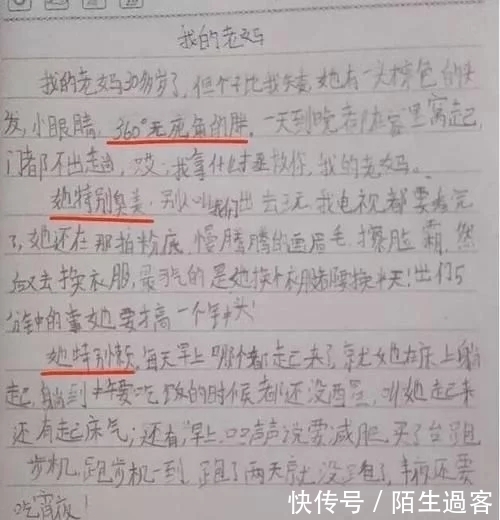 我的老妈
我的老妈30多岁了,但个子比我矮,她有一头棕色的头
发,小眼睛,360°无死角的胖,一天到晚老在家里窝起,
门都不出走尚,哎,我拿什么拯救你,我的老妈。
她特别臭美,别人叫我们出去玩,我电视都要看完
了,她还在那拍粉底,慢腾腾的画眉毛,擦脸霜,然
后又去换衣服,最可气的是她换个衣服都要换半天!出门5
分钟的事她要才高一个钟头!
她特别懒,每天早上哪个都起来了,就她在床上躺
起,躺到要吃饭的时候都还没醒,叫她起来
还有起床气;还有,早上口口声声说要减肥,买了台跑
步机,跑步机一到,跑了两天就没跑了,半夜还要
吃宵夜!
快传号/陌生過客